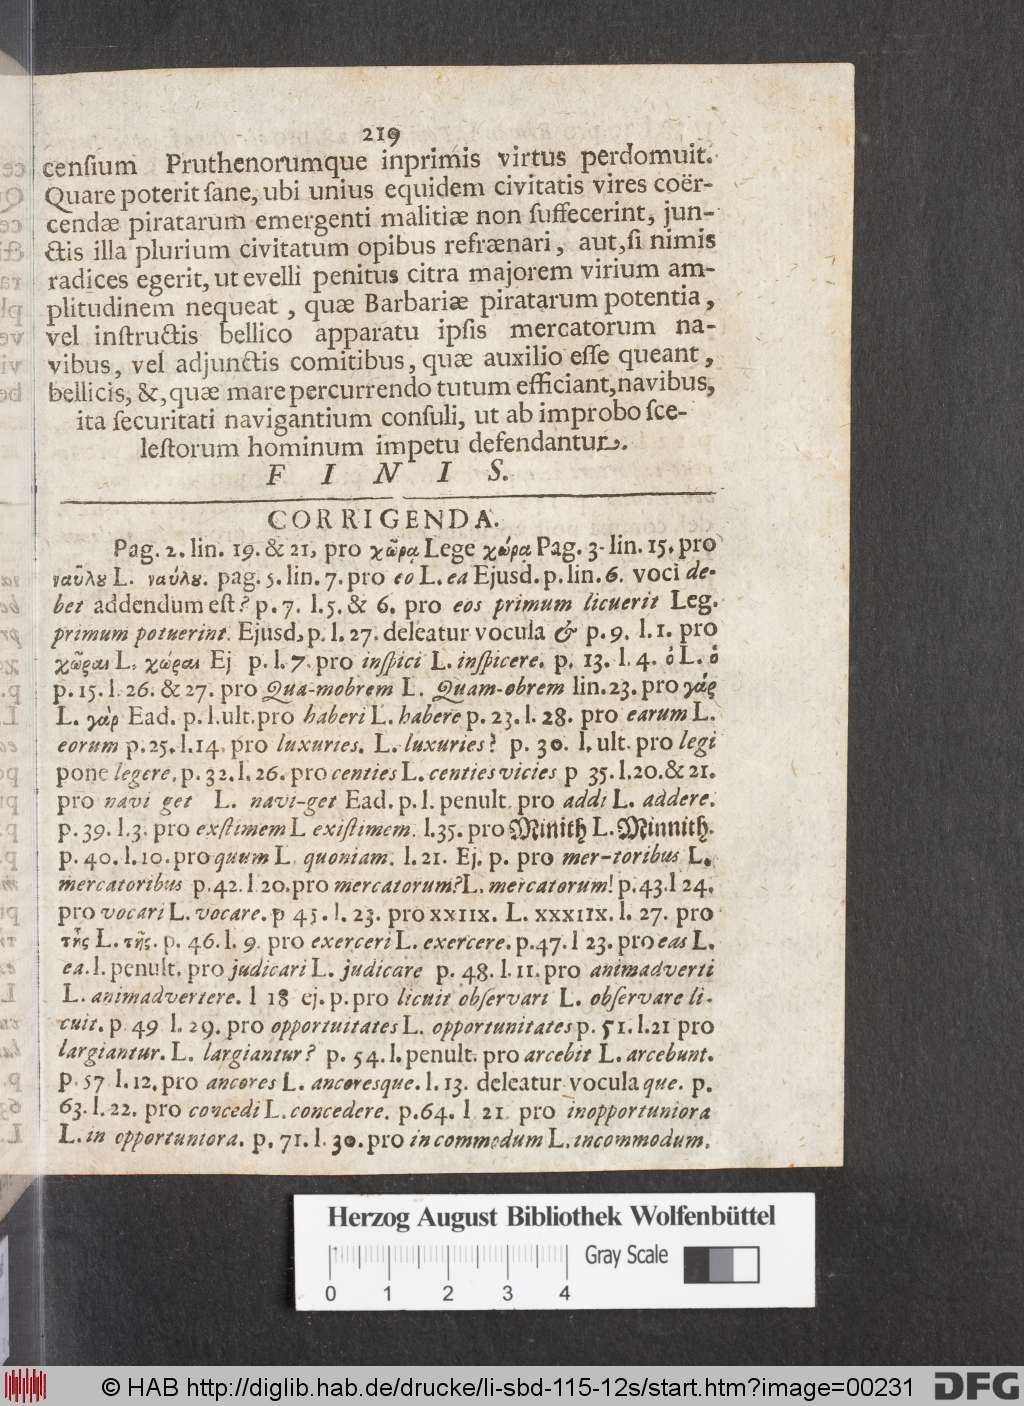 219
cenſium Pruthenorumque inprimis virtus perdomuit.
Quare poterit ſane, ubi unius equidem civitatis vires coër-
cendæ piratarum emergenti malitiæ non ſuffecerint, jun-
ctis illa plurium civitatum opibus refrænari, aut, ſi nimis
radices egerit, ut evelli penitus citra majorem virium am-
plitudinem nequeat, quæ Barbariæ piratarum potentia,
vel inſtructis bellico apparatu ipſis mercatorum na-
vibus, vel adjunctis comitibus, quæ auxilio eſſe queant,
bellicis, &, quæ mare percurrendo tutum efficiant, navibus,
ita ſecuritati navigantium conſuli, ut ab improbo ſce-
leſtorum hominum impetu defendantur.
F I N I S.
CORRIGENDA.
Pag. 2. lin. 19. & 21, pro χῶρα Lege χώρα Pag. 3. lin. 15. pro
ναῦλȣ L. ναύλȣ. pag. 5. lin. 7. pro eo L. ea Ejusd. p. lin. 6. voci de-
bet addendum eſt? p. 7. l. 5. & 6. pro eos primum licuerit Leg.
primum potuerint. Ejusd, p. l. 27. deleatur vocula & p. 9. l. 1. pro
χῶραι L. χώραι Ej p. l. 7. pro inſpici L. inſpicere. p. 13. l. 4. ὁ L. ὁ
p. 15. l. 26. & 27. pro Qua-mobrem L. Quam-obrem lin. 23. pro γάς
L. γὰρ Ead. p. l. ult. pro haberi L. habere p. 23. l. 28. pro earum L.
eorum p. 25. l. 14. pro luxuries. L. luxuries? p. 30. l. ult. pro legi
pone legere. p. 32. l. 26. pro centies L. centies vicies p 35. l. 20. & 21.
pro navi get L. navi-get Ead. p. l. penult. pro addi L. addere.
p. 39. l. 3. pro exſtimem L exiſtimem. l. 35. pro Minith L. Minnith.
p. 40. l. 10. pro quum L. quoniam. l. 21. Ej. p. pro mer-toribus L.
mercatoribus p. 42. l 20. pro mercatorum? L. mercatorum! p. 43. l 24.
pro vocari L. vocare. p 45. l. 23. pro xxiix. L. xxxiix. l. 27. pro
τῆς L. τῆς. p. 46. l. 9. pro exerceri L. exercere. p. 47. l 23. pro eas L.
ea. l. penult. pro judicari L. judicare p. 48. l. 11. pro animadverti
L. animadvertere. l 18 ej. p. pro licuit obſervari L. obſervare li-
cuit. p 49 l. 29. pro opportuitates L. opportunitates p. 51. l. 21 pro
largiantur. L. largiantur? p. 54. l. penult. pro arcebit L. arcebunt.
p. 57 l. 12, pro ancores L. ancoresque. l. 13. deleatur vocula que. p.
63. l. 22. pro concedi L. concedere. p. 64. l 21 pro inopportuniora
L. in opportuniora. p. 71. l. 30. pro in commodum L. incommodum.
Herzog August Bibliothek Wolfenbüttel
Gray Scale
0 1 2 3 4
© HAB http://diglib.hab.de/drucke/li-sbd-115-12s/start.htm?image=00231 DFG